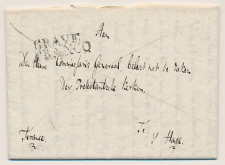 GRAVE
FRANCO
Aan
Den Heere Commissaris Generaal belast met de Zaken
der Protestantsche Kerken
Te
's Hage
Franco